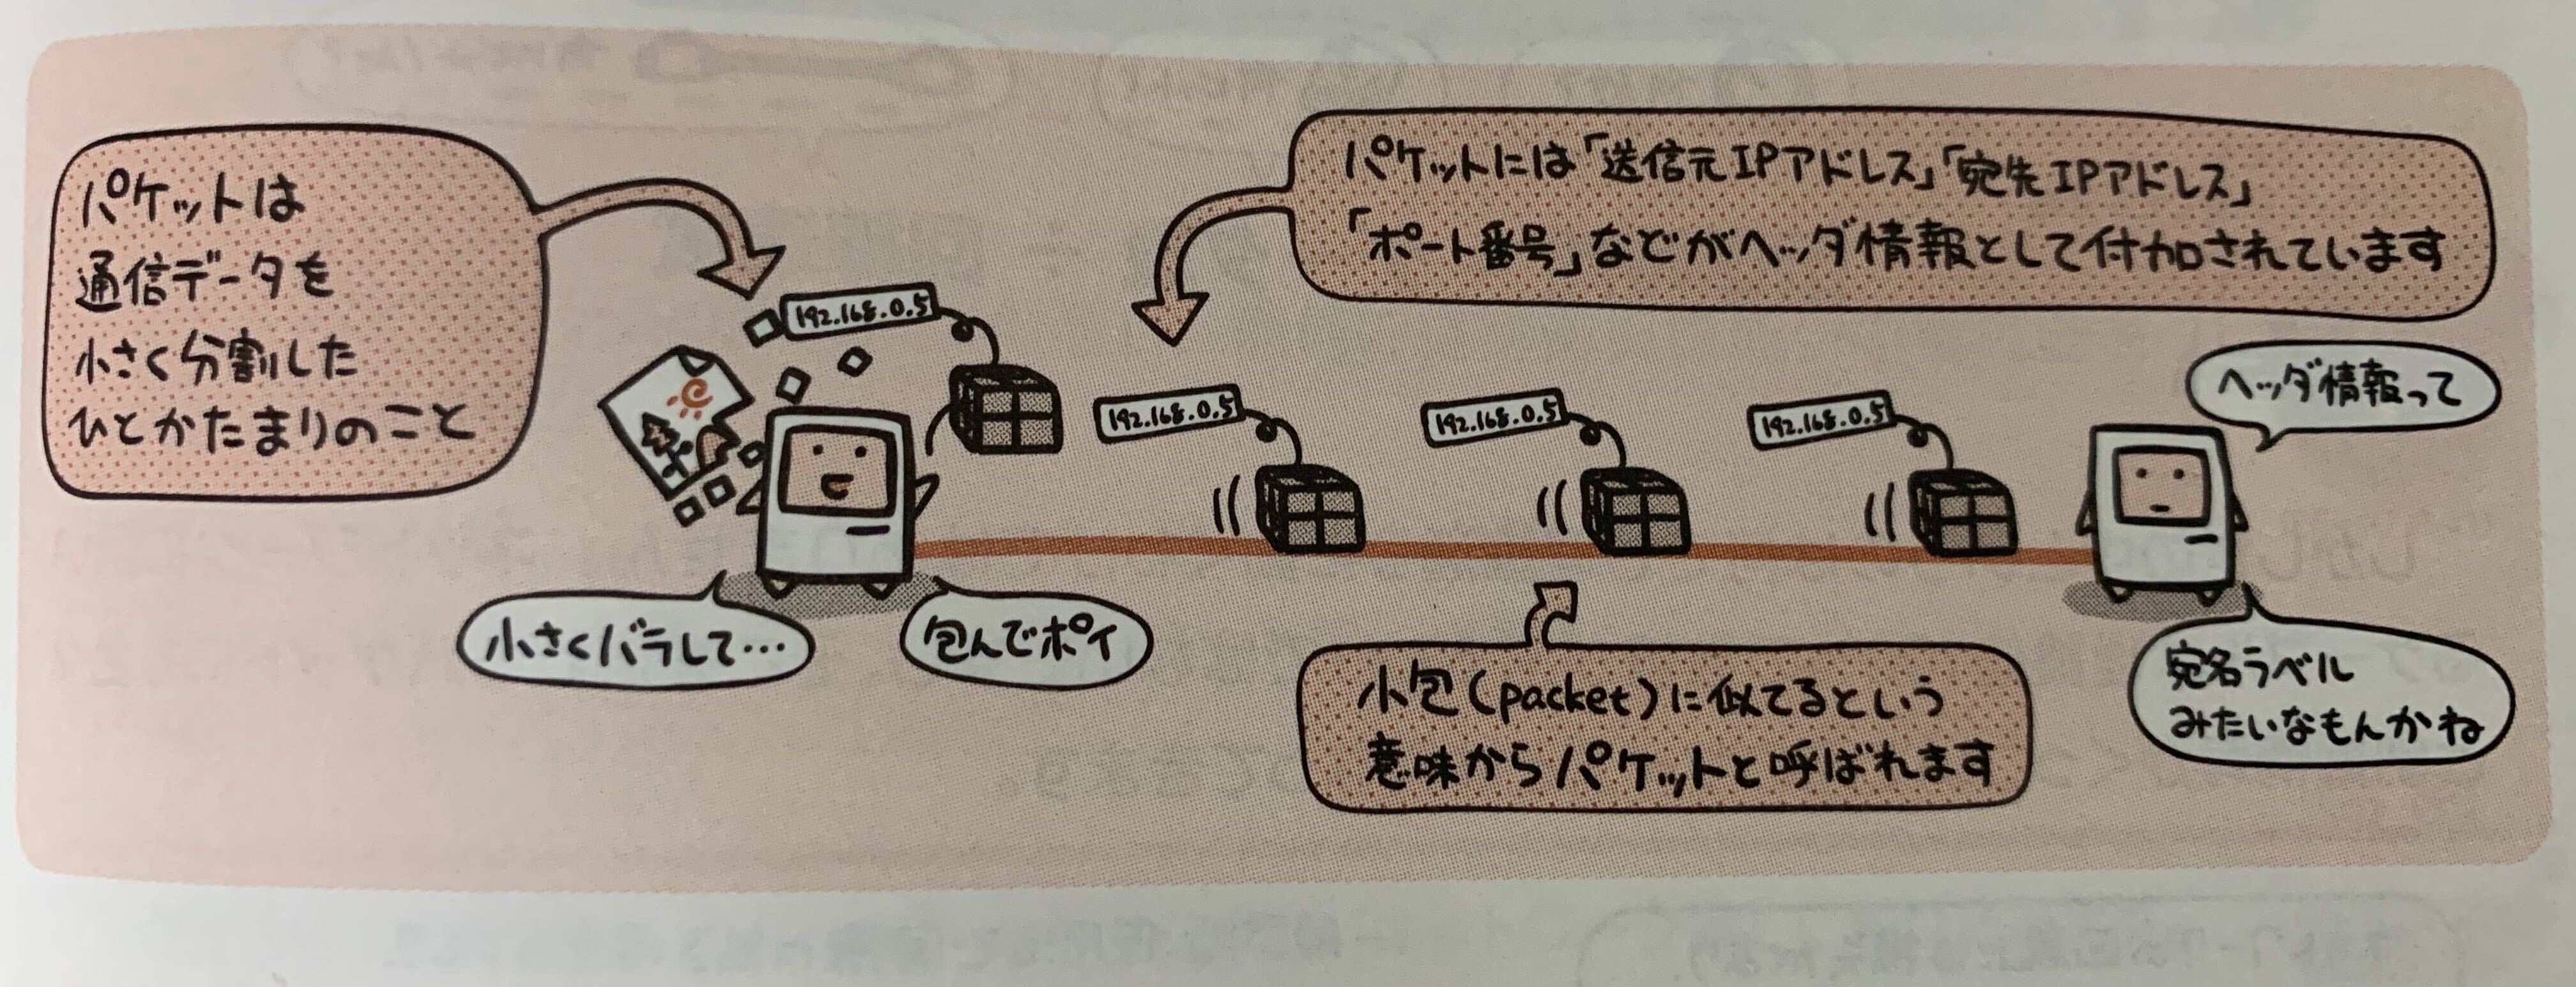 パケットは
通信データを
小さく分割した
ひとかたまりのこと
パケットには「送信元IPアドレス」「宛先IPアドレス」
「ポート番号」などがヘッダ情報として付加されています
192.168.0.5
192.168.0.5
192.168.0.5
192.168.0.5
ヘッダ情報って
小さくバラして…
包んでポイ
小包(packet)に似てるという
意味からパケットと呼ばれます
宛名ラベル
みたいなもんかね